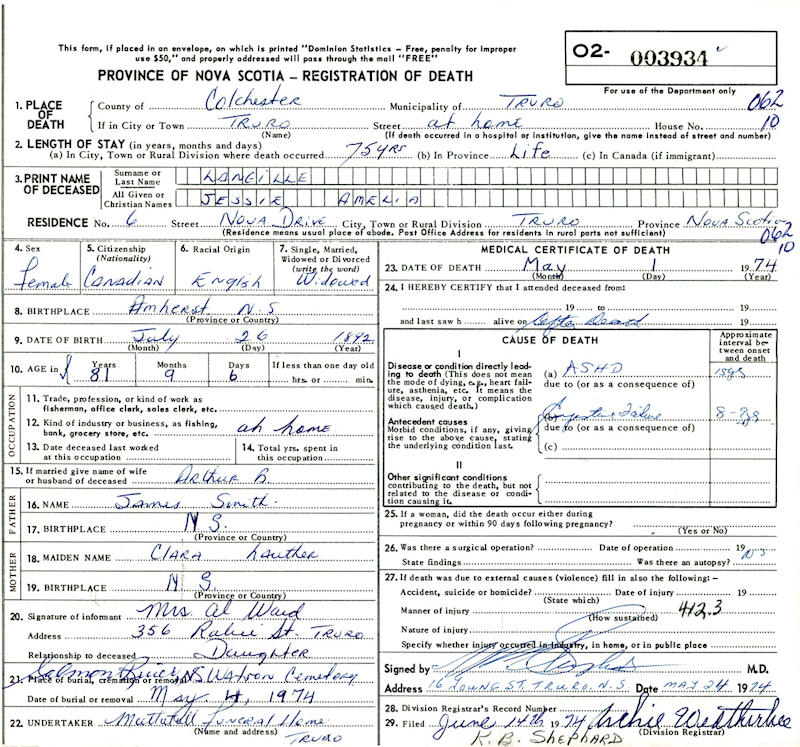 This form, if placed in an envelope, on which is printed "Dominion Statistics – Free, penalty for improper
use $50," and properly addressed will pass through the mail "FREE"
PROVINCE OF NOVA SCOTIA – REGISTRATION OF DEATH
O2- 003934
For use of the Department only
1. PLACE OF DEATH County of Colchester Municipality of TRURO 062
If in City or Town TRURO Street at home House No. 10
(Name) (If death occurred in a hospital or institution, give the name instead of street and number)
2. LENGTH OF STAY (in years, months and days)
(a) In City, Town or Rural Division where death occurred 75 yrs (b) In Province Life (c) In Canada (if immigrant)
3. PRINT NAME OF DECEASED Surname or Last Name LANGILLE
All Given or Christian Names JESSIE AMELIA
RESIDENCE No. 6 Street NOVA DRIVE City, Town or Rural Division TRURO Province NOVA SCOTIA
(Residence means usual place of abode. Post Office Address for residents in rural parts not sufficient) 062
10
4. Sex 5. Citizenship (Nationality) 6. Racial Origin 7. Single, Married, Widowed or Divorced (write the word)
Female Canadian English Widowed
8. BIRTHPLACE Amherst N.S
(Province or Country)
9. DATE OF BIRTH July 26 1892
(Month) (Day) (Year)
10. AGE in Years Months Days If less than one day old
81 9 6 hrs. or min.
OCCUPATION
11. Trade, profession, or kind of work as
fisherman, office clerk, sales clerk, etc.
12. Kind of industry or business, as fishing,
bank, grocery store, etc. at home
13. Date deceased last worked at this occupation 14. Total yrs. spent in this occupation
15. If married give name of wife
or husband of deceased Arthur
FATHER
16. NAME James Smith
17. BIRTHPLACE N S.
(Province or Country)
MOTHER
18. MAIDEN NAME Clara Lauther
19. BIRTHPLACE N S.
(Province or Country)
20. Signature of informant Mrs. Al Ward
Address 356 St. TRURO
Relationship to deceased Daughter
Salmon River NS Watson Cemetery
21. Place of burial, cremation or removal
Date of burial or removal May 4, 1974
22. UNDERTAKER Mattatall Funeral Home
(Name and address) TRURO
MEDICAL CERTIFICATE OF DEATH
23. DATE OF DEATH May 1 1974
(Month) (Day) (Year)
24. I HEREBY CERTIFY that I attended deceased from:
19 to 19
and last saw h alive on After Death 19
CAUSE OF DEATH
Approximate interval between onset and death
I
Disease or condition directly leading to death (This does not mean the mode of dying, e.g., heart failure, asthenia, etc. It means the disease, injury, or complication which caused death.)
(a) ASHD 15 yrs
due to (or as a consequence of)
Antecedent causes
Morbid conditions, if any, giving rise to the above cause, stating the underlying condition last.
(b) Congestive Failure
due to (or as a consequence of)
(c)
II
Other significant conditions
contributing to the death, but not related to the disease or condition causing it.
25. If a woman, did the death occur either during
pregnancy or within 90 days following pregnancy?
(Yes or No)
26. Was there a surgical operation? Date of operation 19
State findings Was there an autopsy? No
27. If death was due to external causes (violence) fill in also the following:–
Accident, suicide or homicide? Date of injury 19
(State which)
Manner of injury 412.3
(How sustained)
Nature of injury
Specify whether injury occurred in industry, in home, or in public place
Signed by M.D.
Address 16 YOUNG ST. TRURO, N.S. Date MAY 24 1974
28. Division Registrar's Record Number
29. Filed June 14th 1974 Archie Weatherbee
(Division Registrar)
K. B. SHEPHARD